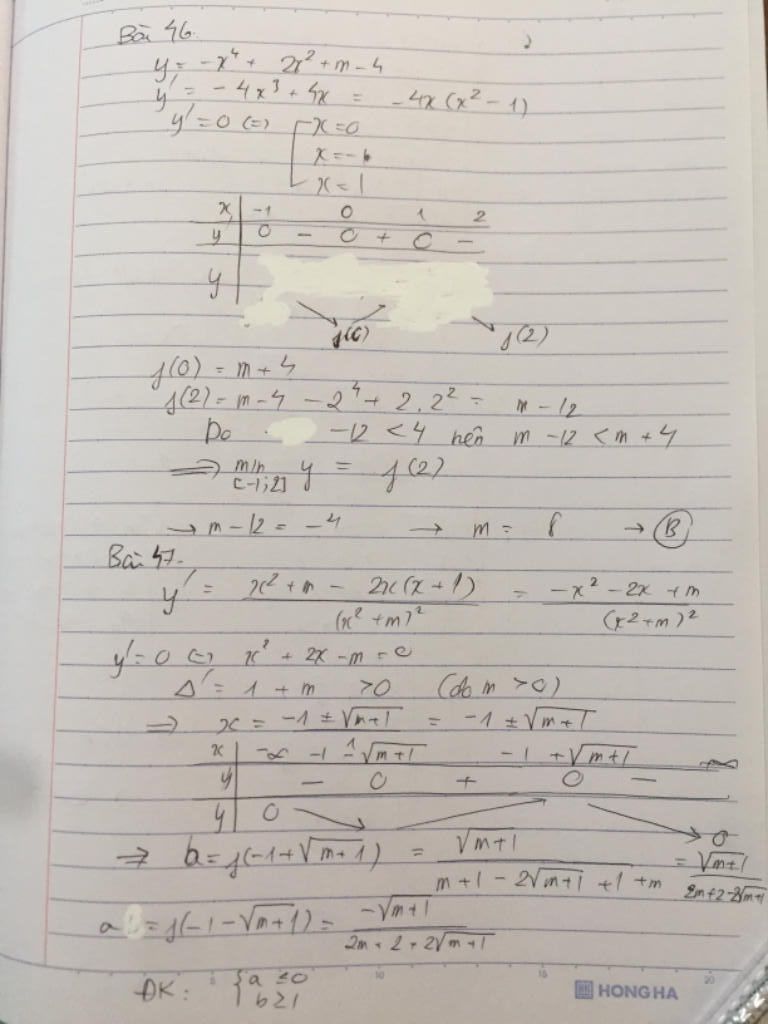 Bài 46.
y = -x⁴ + 2x² + m - 4
y' = -4x³ + 4x = -4x(x² - 1)
y' = 0 (=) [x = 0
x = -1
x = 1
x -1 0 1 2
y' 0 - 0 + 0 -
y
f(0) f(2)
f(0) = m + 4
f(2) = m - 4 - 2⁴ + 2.2² = m - 12
Do -12 < 4 nên m - 12 < m + 4
=> min y = f(2)
[-1;2]
→ m - 12 = -4 → m = 8 → B
Bài 47.
y' = (x² + m - 2x(x + 1))/(x² + m)² = (-x² - 2x + m)/(x² + m)²
y' = 0 (=) x² + 2x - m = 0
Δ' = 1 + m > 0 (do m > 0)
=> x = -1 ± √(m+1) = -1 ± √(m+1)
x -∞ -1 - √(m+1) -1 + √(m+1) +∞
y - 0 + 0 -
y 0 0
=> b = f(-1 + √(m+1)) = √(m+1)/(m+1 - 2√(m+1) + 1 + m) = √(m+1)/(2m+2-2√(m+1))
a = f(-1 - √(m+1)) = -√(m+1)/(2m + 2 + 2√(m+1))
ĐK: {a ≤ 0
b ≥ 1
5 10 15 20
HONG HA